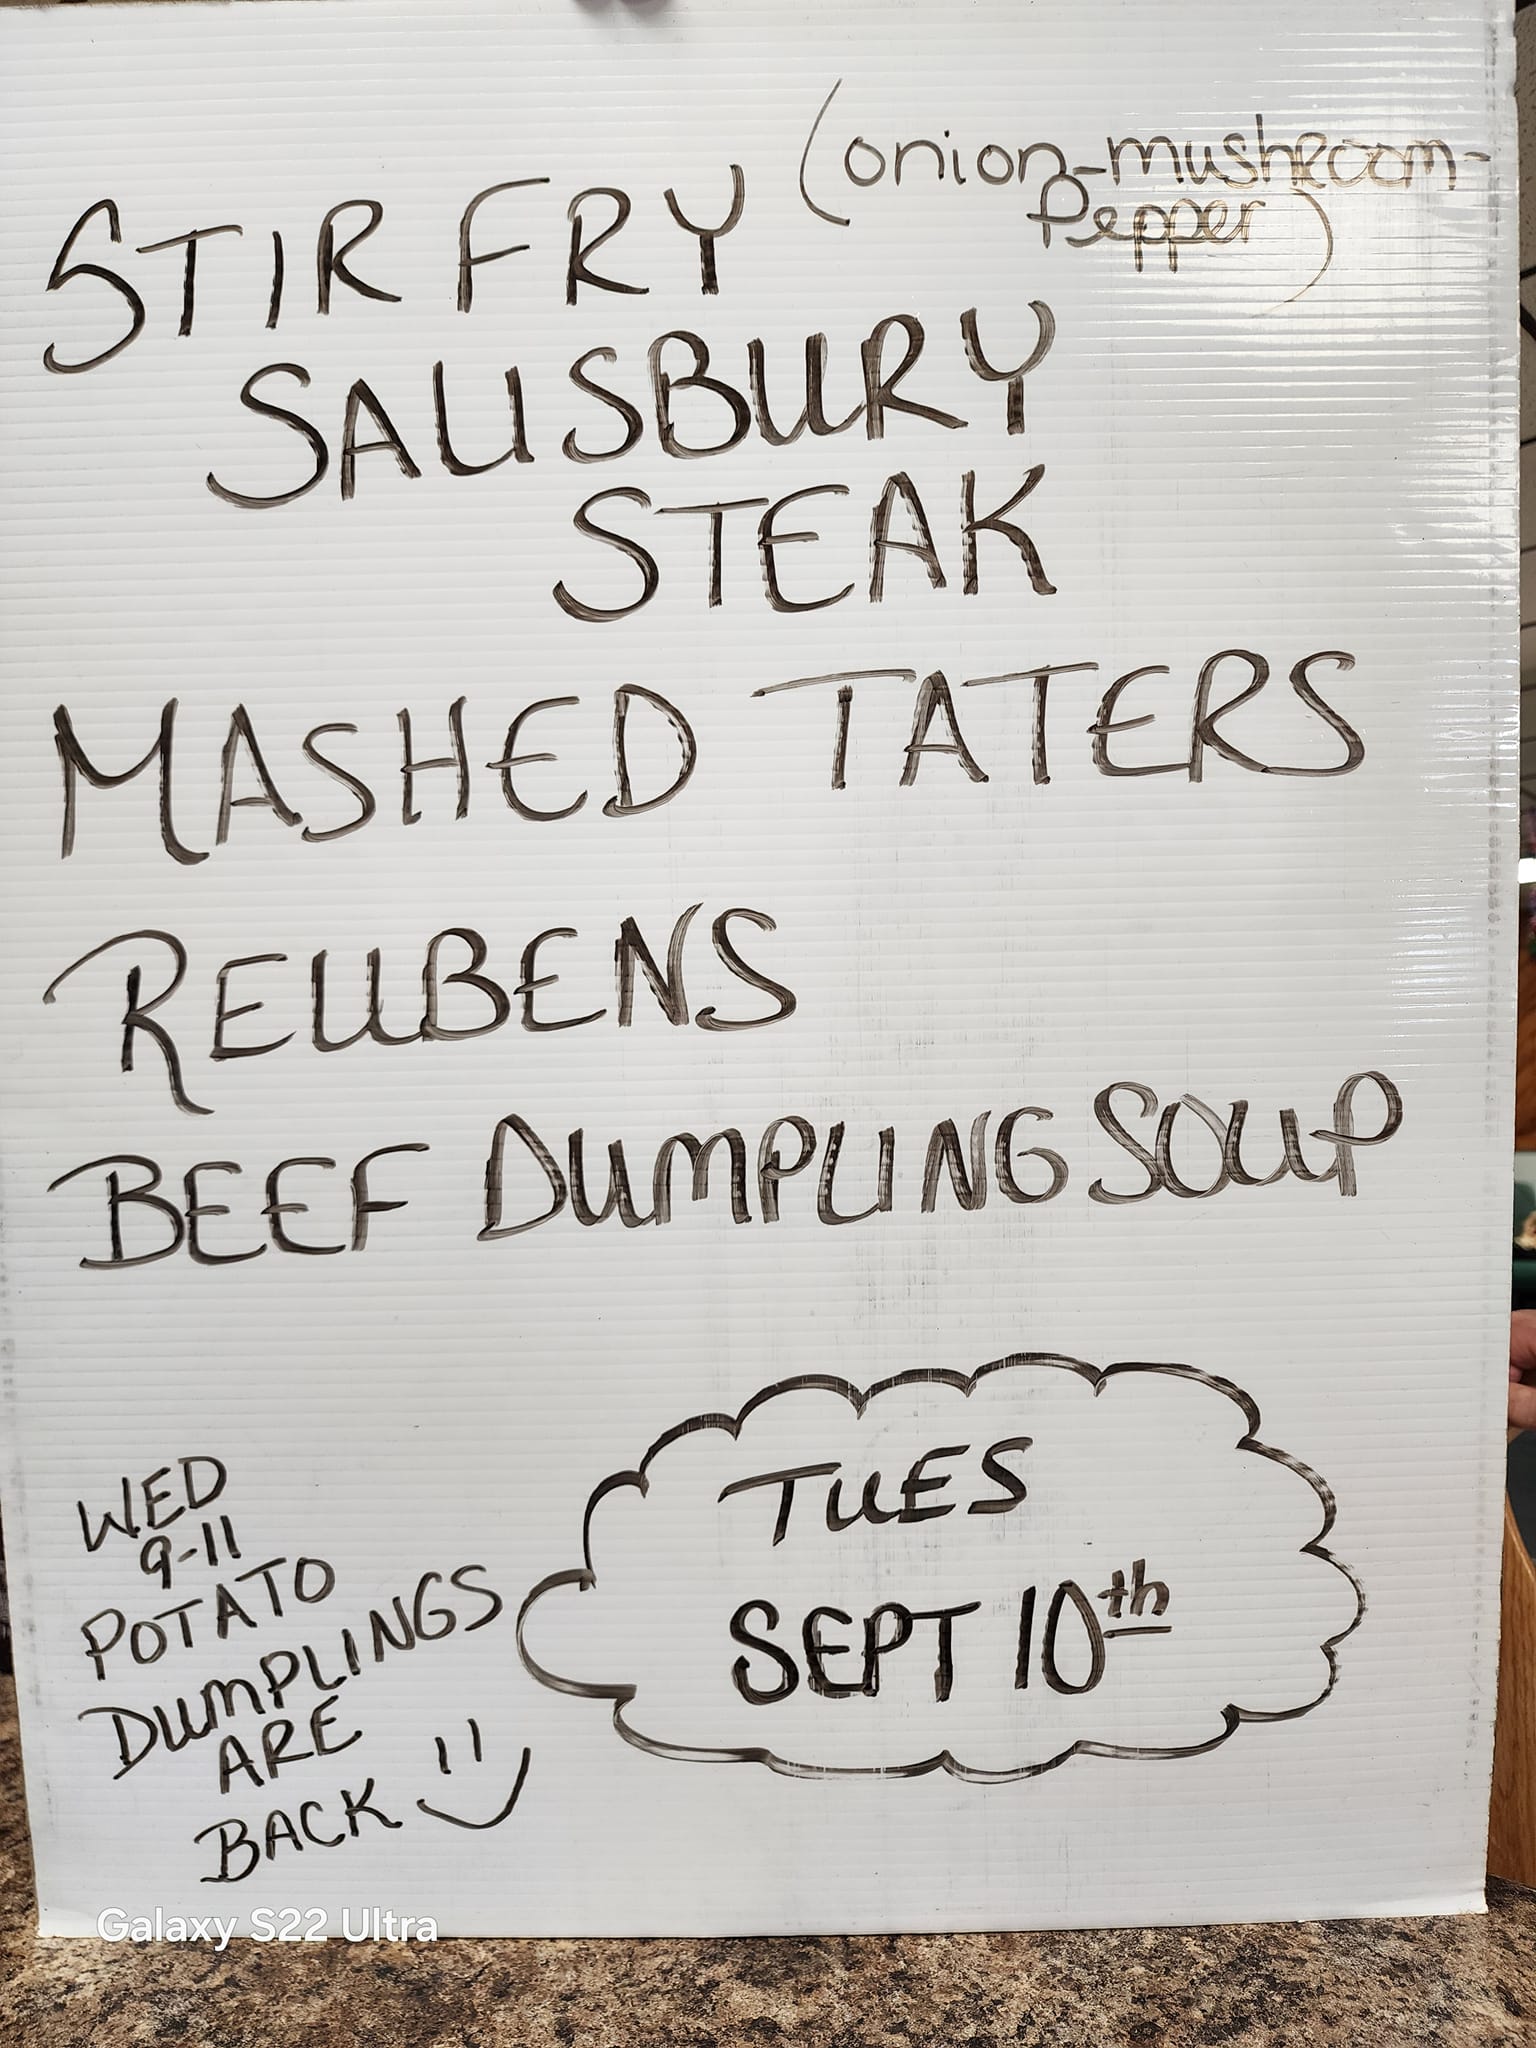 STIR FRY (onion-mushroom-
Pepper)
SALISBURY
STEAK
MASHED TATERS
REUBENS
BEEF DUMPLING SOUP
TUES
SEPT 10th
WED
9-11
POTATO
DUMPLINGS
ARE
BACK
Galaxy S22 Ultra